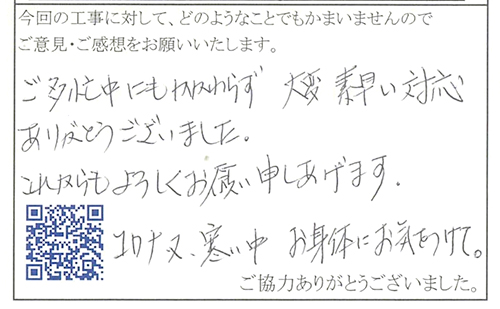 今回の工事に対して、どのようなことでもかまいませんので
ご意見・ご感想をお願いいたします。
ご多忙中にもかかわらず 大変 素早い対応
ありがとうございました。
これからもよろしくお願い申しあげます。
コロナ又、寒い中 お身体にお気をつけて。
ご協力ありがとうございました。